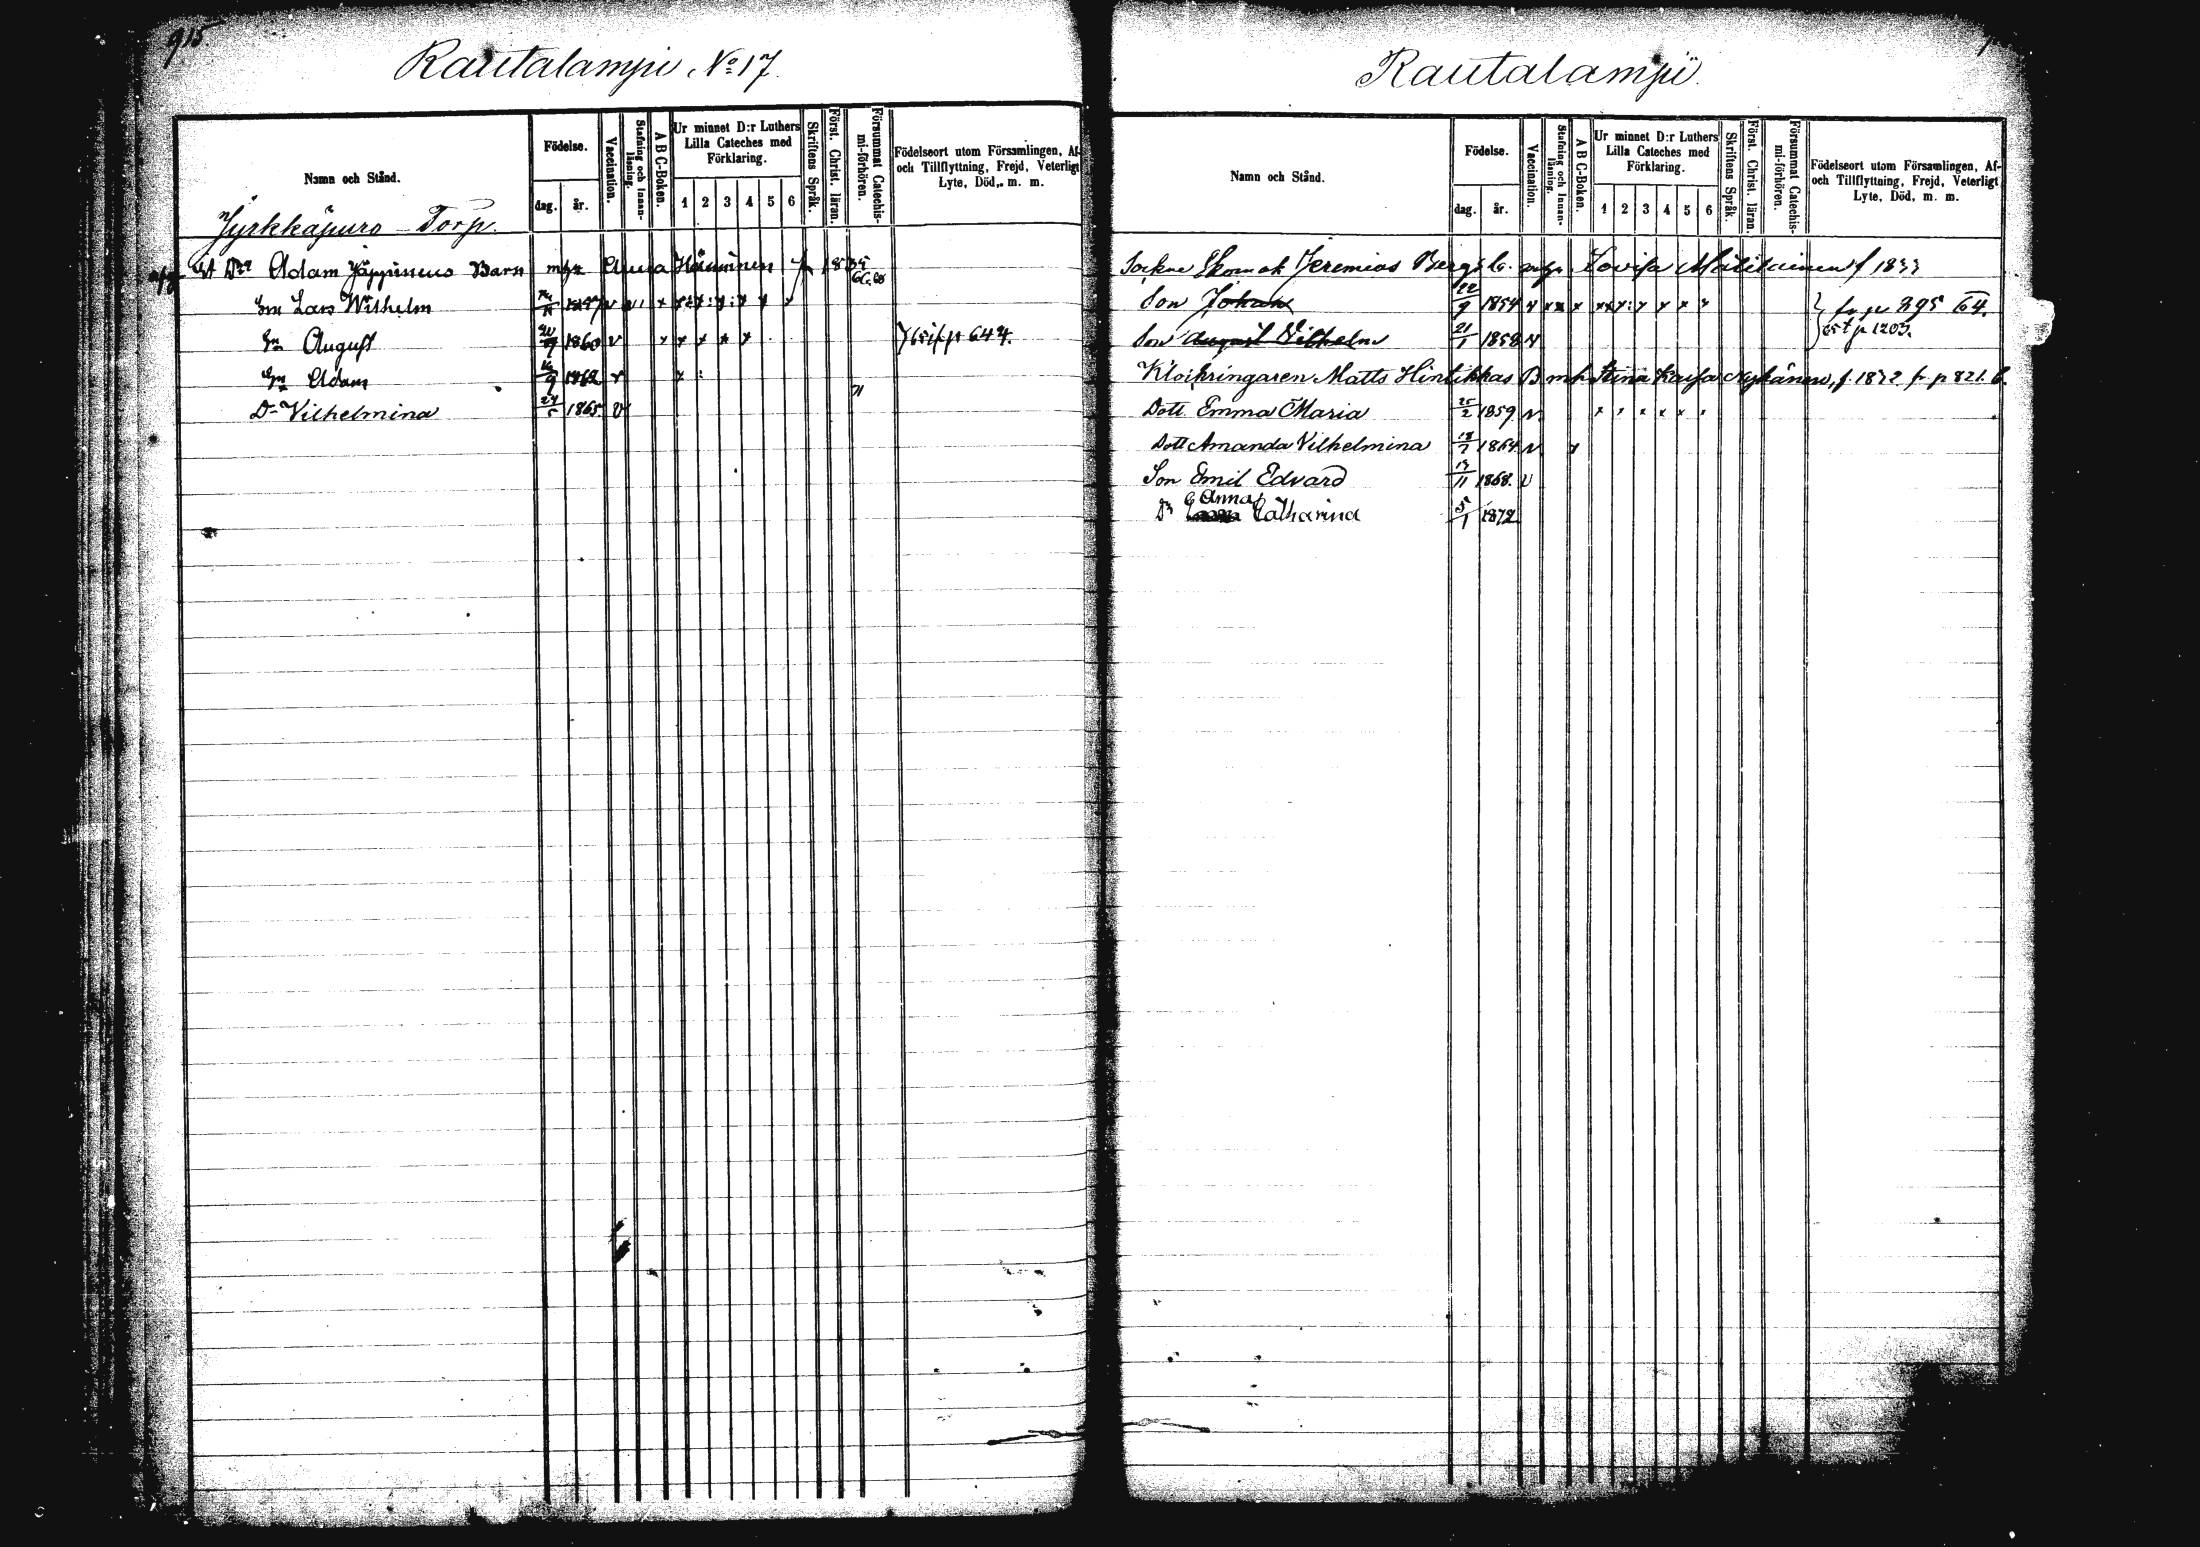 915.
Rautalampi No 17.
Namn och Stånd.
Födelse.
dag. år.
Vaccination.
Stafning och Innanläsning.
A B C-Boken.
Ur minnet D:r Luthers Lilla Cateches med Förklaring.
1 2 3 4 5 6
Skriftens Språk.
Först. Christ. läran.
Försummat Catechismi-förhören.
Födelseort utom Församlingen, Af- och Tillflyttning, Frejd, Veterligt Lyte, Död, m. m.
Jyrkkäpuro Torp.
Adam Jäppinens Barn m Anna Hänninen f 1835
Lars Wilhelm v x x x x x x
August 1860 v x x x x x p 644.
Adam 9 1862 v x
Dr Vilhelmina 24/5 1865 v
Rautalampi
Namn och Stånd.
Födelse.
dag. år.
Vaccination.
Stafning och Innanläsning.
A B C-Boken.
Ur minnet D:r Luthers Lilla Cateches med Förklaring.
1 2 3 4 5 6
Skriftens Språk.
Först. Christ. läran.
Försummat Catechismi-förhören.
Födelseort utom Församlingen, Af- och Tillflyttning, Frejd, Veterligt Lyte, Död, m. m.
Sockne Skomak Jeremias Bergs b. Lovisa Mätitainen f 1833
Son Johan 22/9 1854 v x x x x x x fr p 895 64.
Son August Vilhelm 21/1 1858 v 65 t p 1203.
Klockringaren Matts Hintikkas B m h Stina Kaisa Nykänen, f. 1832 fr p 821. b.
Dott Emma Maria 25/2 1859 v x x x x x x
Dott Amanda Vilhelmina 18/7 1864 v x
Son Emil Edvard 13/11 1868. v
Dr Anna Catharina 5/1 1872